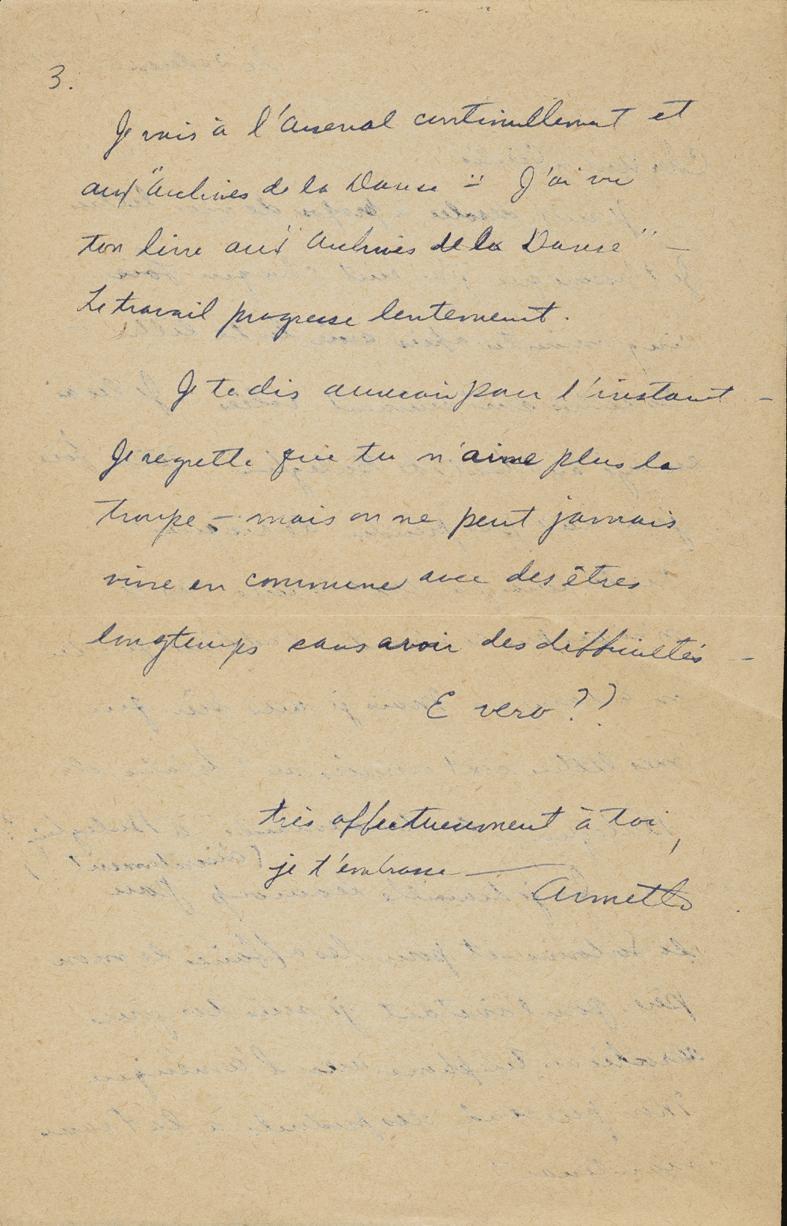 3.
Je vais à l'Arsenal continuellement et
aux "Archives de la Danse" = J'ai vu
ton livre aux "Archives de la Danse" -
Le travail progresse lentement.
Je te dis aurevoir pour l'instant -
Je regrette que tu n'aime plus la
troupe - mais on ne peut jamais
vivre en commune avec des êtres
longtemps sans avoir des difficultés -
E vero ??
très affectueusement à toi,
je t'embrasse —